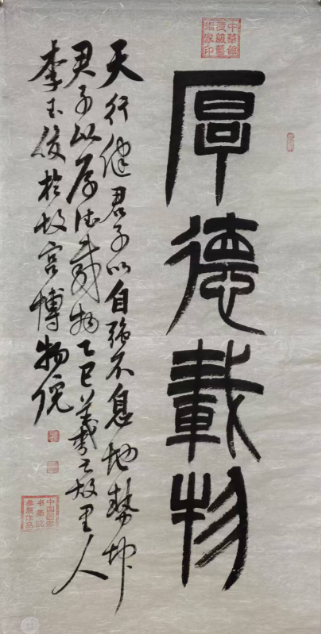 厚德載物
天行健君子以自强不息地勢坤
君子以厚德載物乙巳義之故里人
李玉俊於故宫博物院